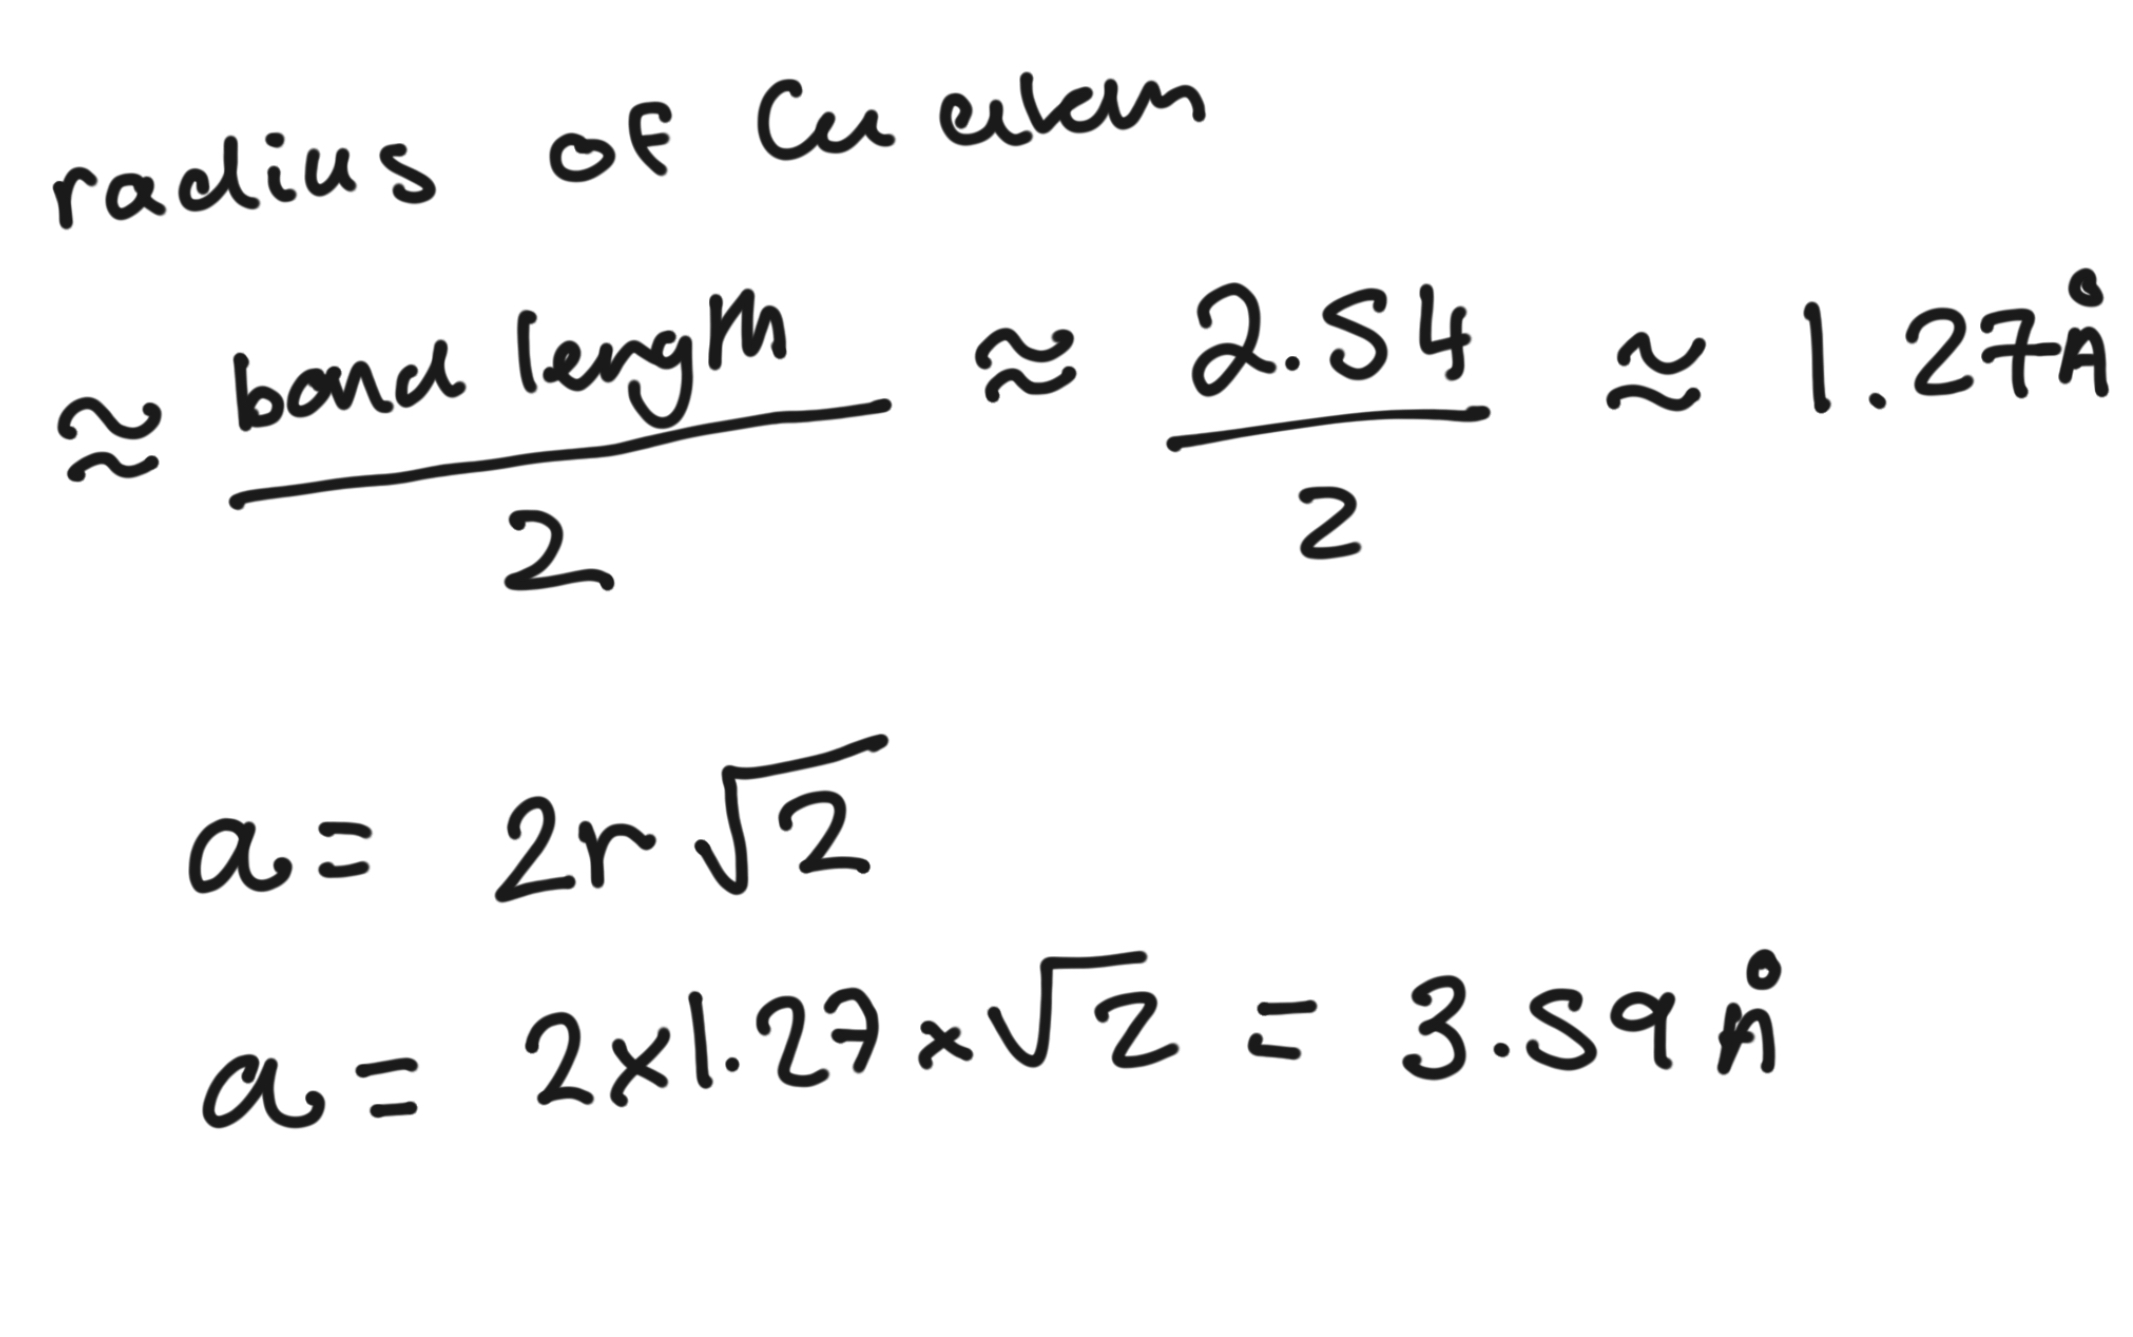 radius of Cu atom
≈ bond length / 2 ≈ 2.54 / 2 ≈ 1.27Å
a = 2r√2
a = 2x1.27x√2 = 3.59 Å